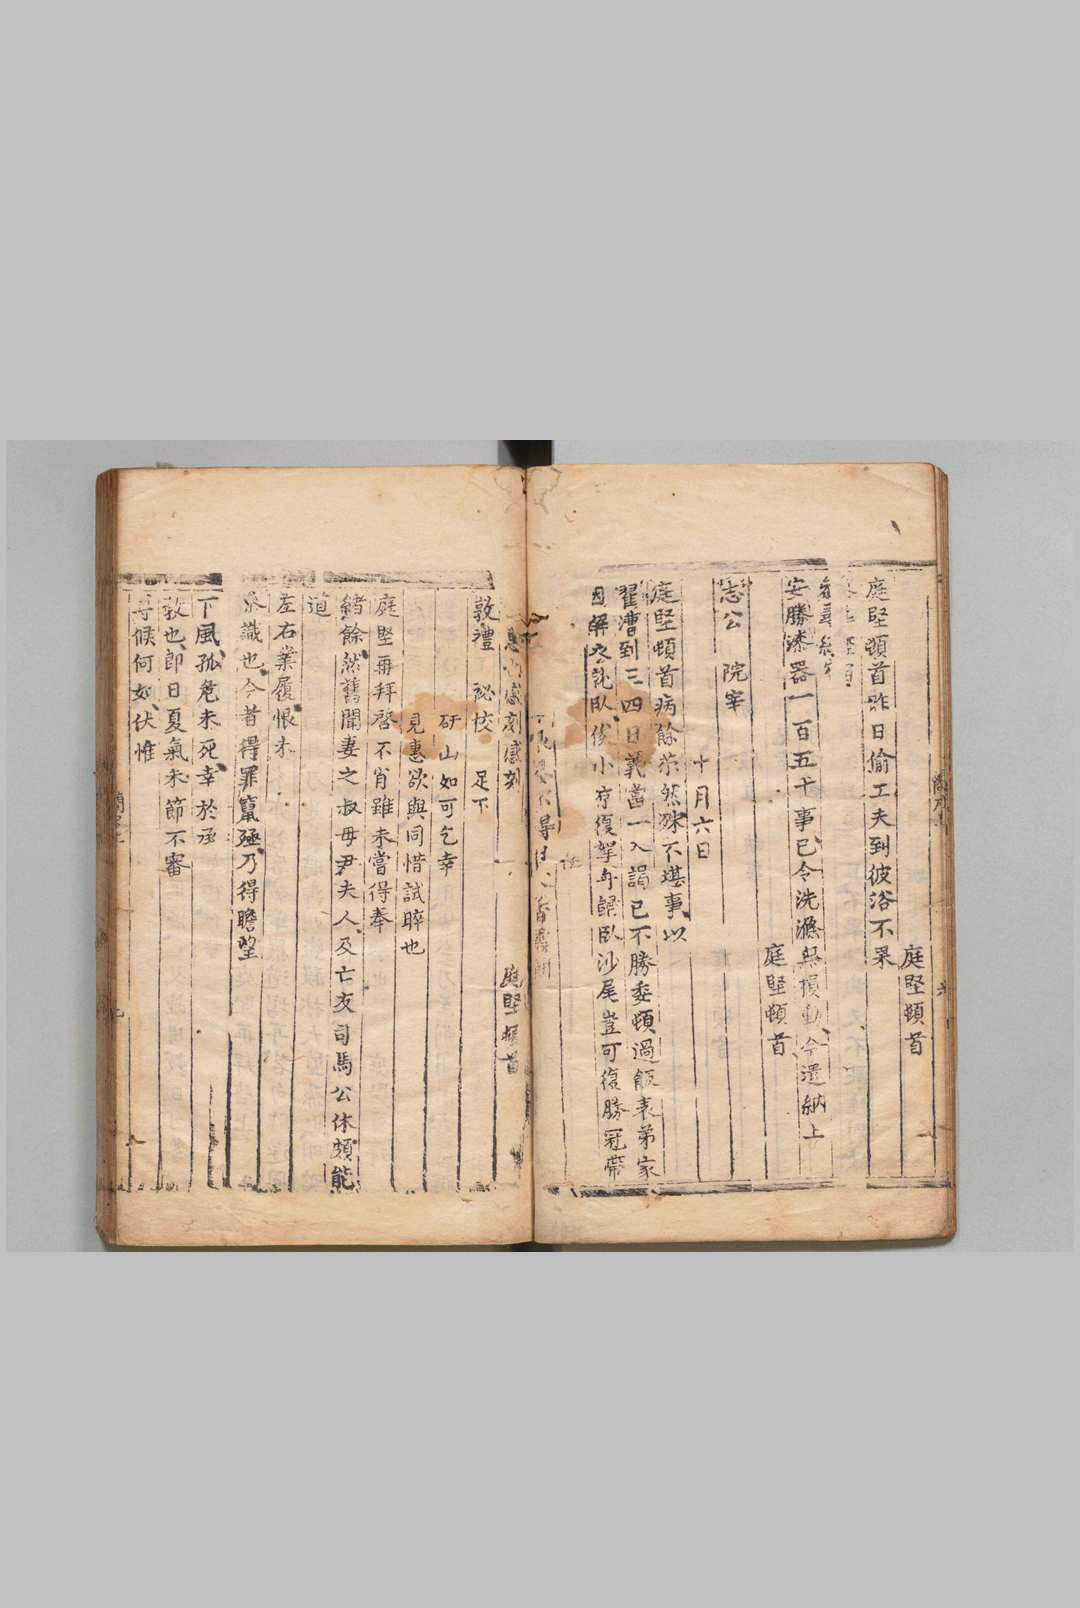 庭堅頓首
庭堅頓首昨日偷工夫到彼浴不果
安勝漆器一百五十事已令洗滌無損動今還納上
庭堅頓首
志公 院宰
十月六日
庭堅頓首病餘茶然殊不堪事以
翟漕到三四日義當一入謁已不勝委頓過飯表弟家
因解衣就臥俟小定復挐舟歸臥沙尾豈可復勝冠帶
感刻感刻 庭堅頓首
敦禮 祕校 足下
矸山如可乞幸
見惠欲與同惜試晬也
庭堅再拜啓不肖雖未嘗得奉
緒餘然舊聞妻之叔母尹夫人及亡友司馬公休頗能
道
左右業履恨未
承識也今者得罪竄殛乃得瞻望
下風孤危未死幸於承
教也即日夏氣未節不審
侍候何如伏惟